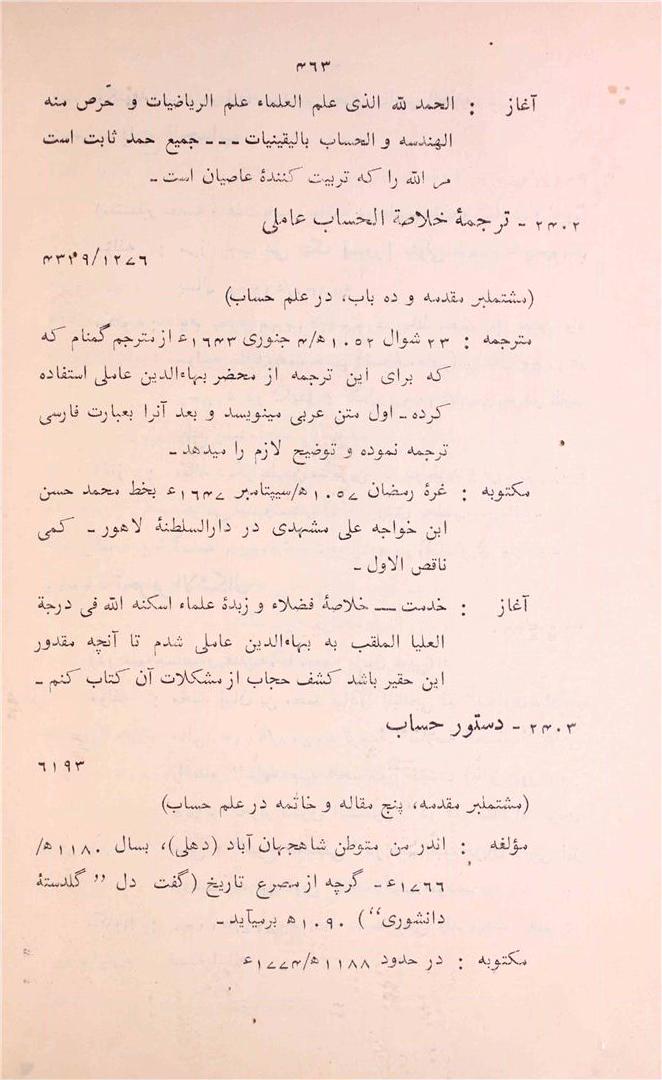 ۴۶۳
آغاز : الحمد لله الذی علم العلماء علم الریاضیات و خرص منه
الهندسه و الحساب بالیقینیات ـ ـ ـ جمیع حمد ثابت است
مر الله را که تربیت کنندهٔ عاصیان است ـ
۲۴۰۲ ـ ترجمهٔ خلاصة الحساب عاملی
۴۳۳۹/۱۲۷۶
(مشتملبر مقدمه و ده باب، در علم حساب)
مترجمه : ۲۳ شوال ۱۰۵۲ھ/۴ جنوری ۱۶۴۳ء از مترجم گمنام که
که برای این ترجمه از محضر بهاءالدین عاملی استفاده
کرده ـ اول متن عربی مینویسد و بعد آنرا بعبارت فارسی
ترجمه نموده و توضیح لازم را میدهد ـ
مکتوبه : غرهٔ رمضان ۱۰۵۷ھ/سیپتامبر ۱۶۴۷ء بخط محمد حسن
ابن خواجه علی مشهدی در دارالسلطنهٔ لاهور ـ کمی
ناقص الاول ـ
آغاز : خدمت ـــ خلاصهٔ فضلاء و زبدهٔ علماء اسکنه الله فی درجة
العلیا الملقب به بهاءالدین عاملی شدم تا آنچه مقدور
این حقیر باشد کشف حجاب از مشکلات آن کتاب کنم ـ
۲۴۰۳ ـ دستور حساب
۶۱۹۳
(مشتملبر مقدمه، پنج مقاله و خاتمه در علم حساب)
مؤلفه : اندر من متوطن شاهجهان آباد (دهلی)، بسال ۱۱۸۰ھ/
۱۷۶۶ء ـ گرچه از مصرع تاریخ (گفت دل ”گلدستهٔ
دانشوری“) ۱۰۹۰ھ برمیآید ـ
مکتوبه : در حدود ۱۱۸۸ھ/۱۷۷۴ء